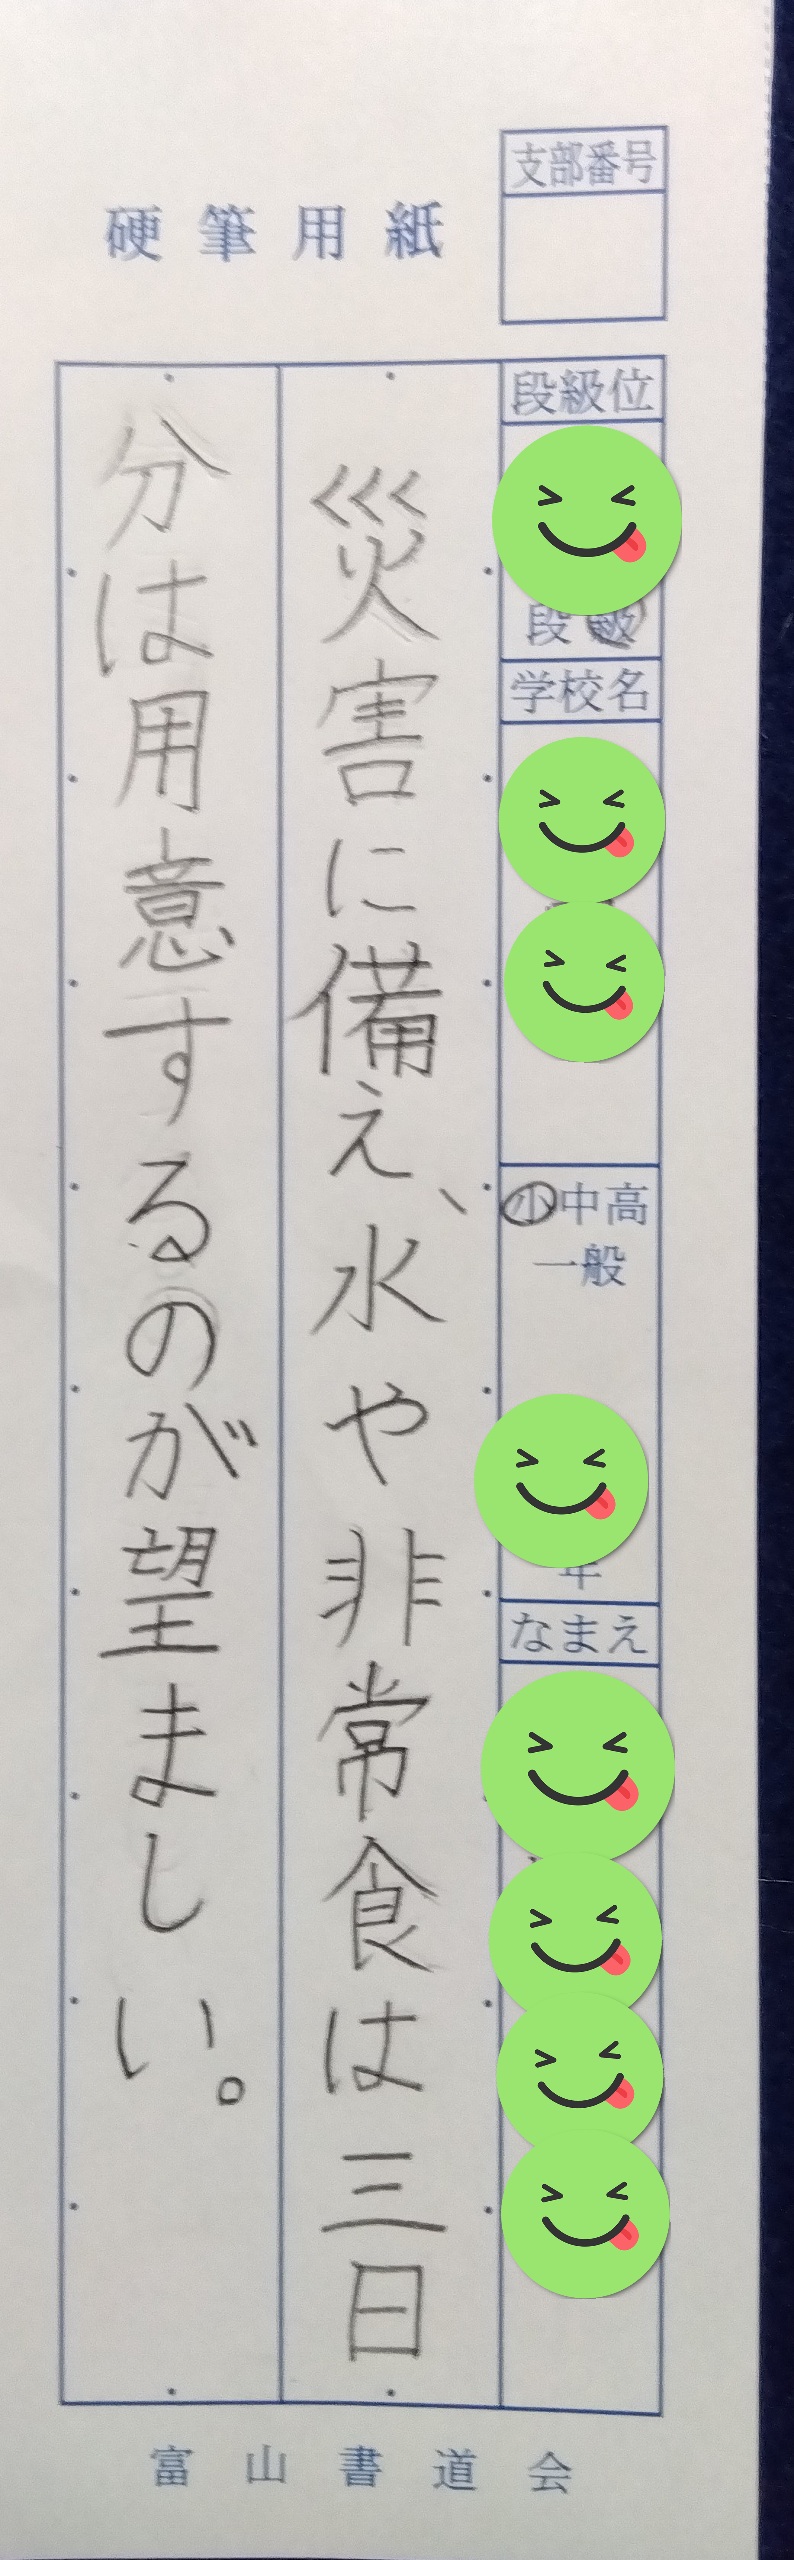 硬筆用紙
支部番号
段級位
段級
学校名
小中高
一般
年
なまえ
災害に備え、水や非常食は三日
分は用意するのが望ましい。
富山書道会